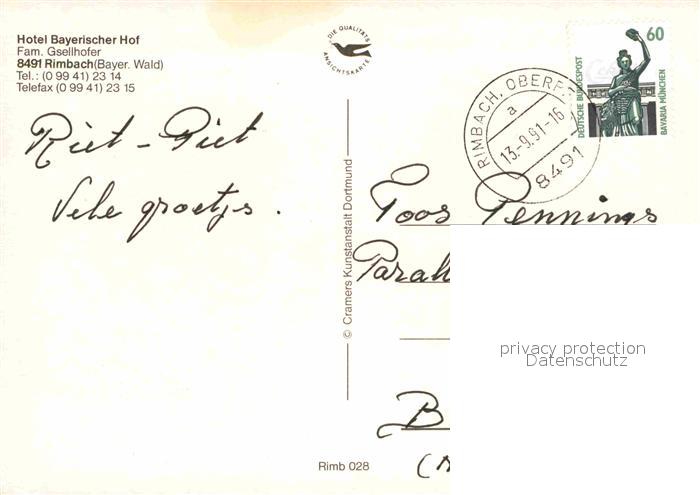 Hotel Bayerischer Hof
Fam. Gsellhofer
8491 Rimbach (Bayer. Wald)
Tel.: (0 99 41) 23 14
Telefax (0 99 41) 23 15
DIE QUALITÄTS
ANSICHTSKARTE
RIMBACH, OBERPF.
a
13.-9.91-16
8491
60
DEUTSCHE BUNDESPOST
BAVARIA MÜNCHEN
Riet - Piet
Vele groetjes.
© Cramers Kunstanstalt Dortmund
Toos Pennings
Paral
privacy protection
Datenschutz
B
(
Rimb 028